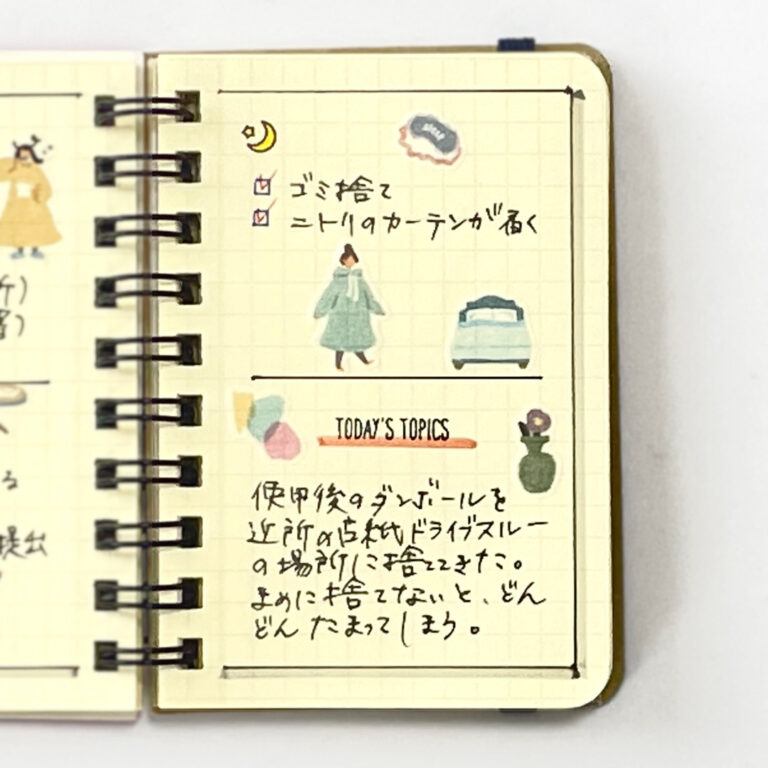 ゴミ捨て
ニトリのカーテンが届く
TODAY'S TOPICS
使用後のダンボールを
近所の古紙ドライブスルー
の場所に捨ててきた。
まめに捨てないと、どん
どんたまってしまう。
る
提出